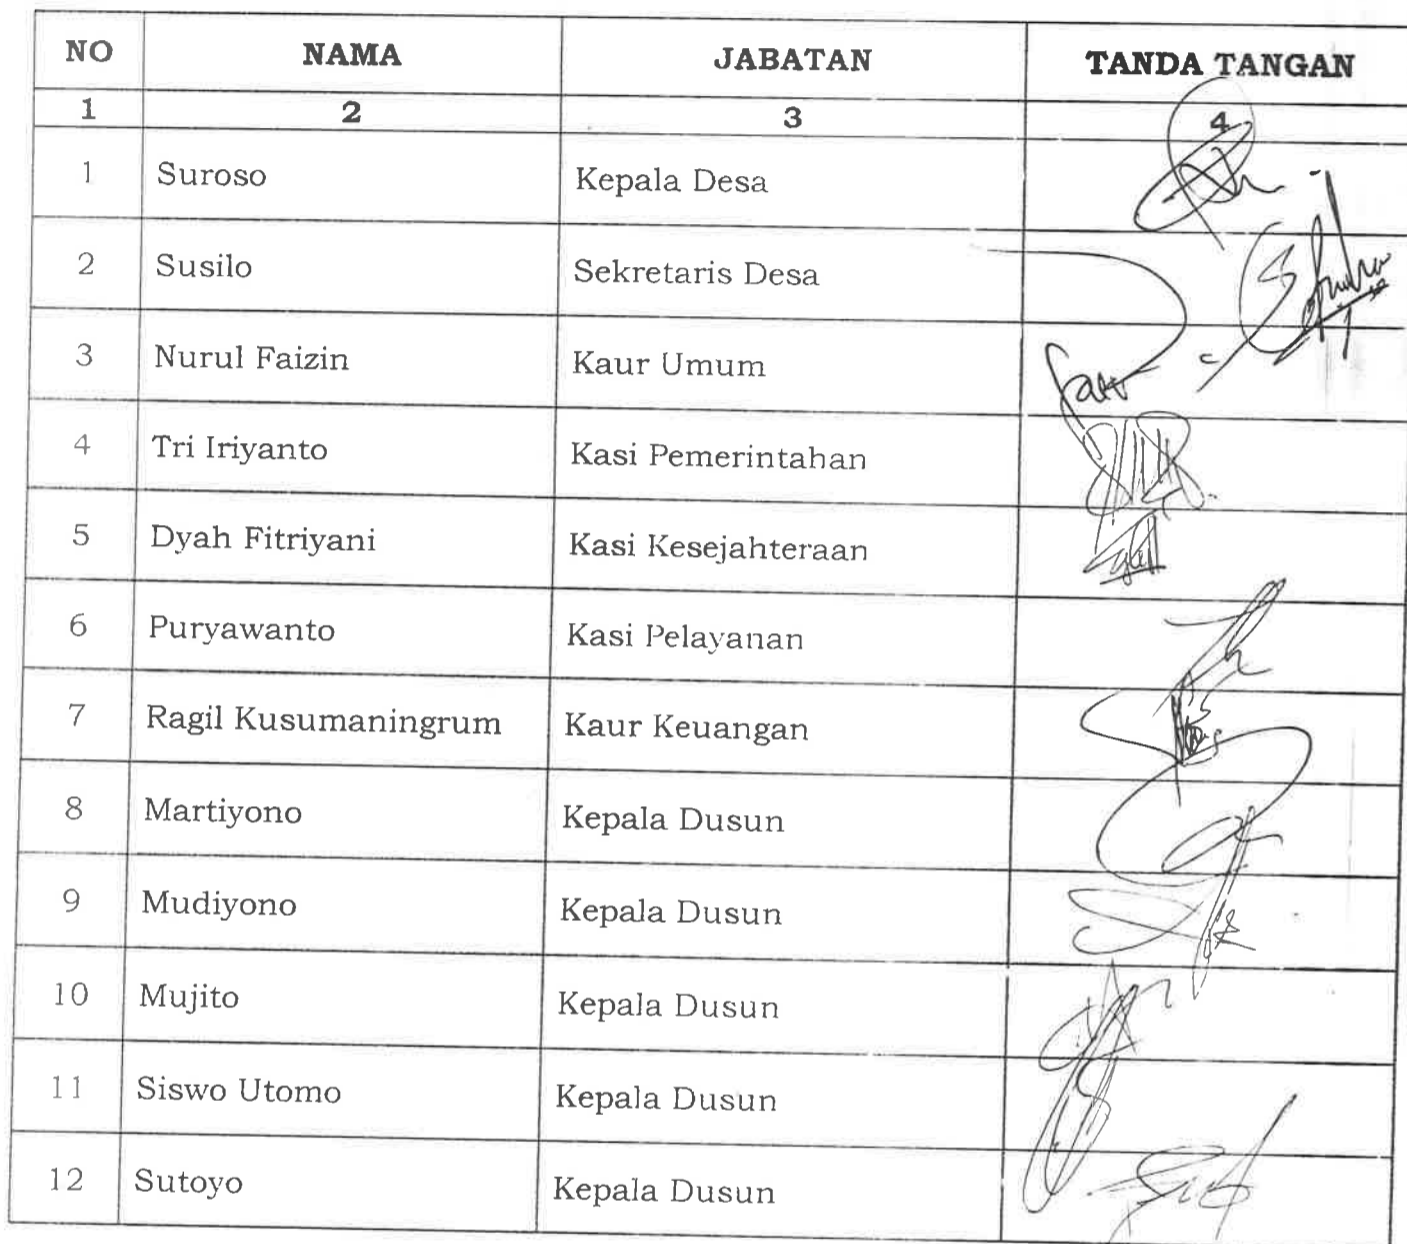 NO NAMA JABATAN TANDA TANGAN
1 2 3 4
1 Suroso Kepala Desa
2 Susilo Sekretaris Desa
3 Nurul Faizin Kaur Umum
4 Tri Iriyanto Kasi Pemerintahan
5 Dyah Fitriyani Kasi Kesejahteraan
6 Puryawanto Kasi Pelayanan
7 Ragil Kusumaningrum Kaur Keuangan
8 Martiyono Kepala Dusun
9 Mudiyono Kepala Dusun
10 Mujito Kepala Dusun
11 Siswo Utomo Kepala Dusun
12 Sutoyo Kepala Dusun